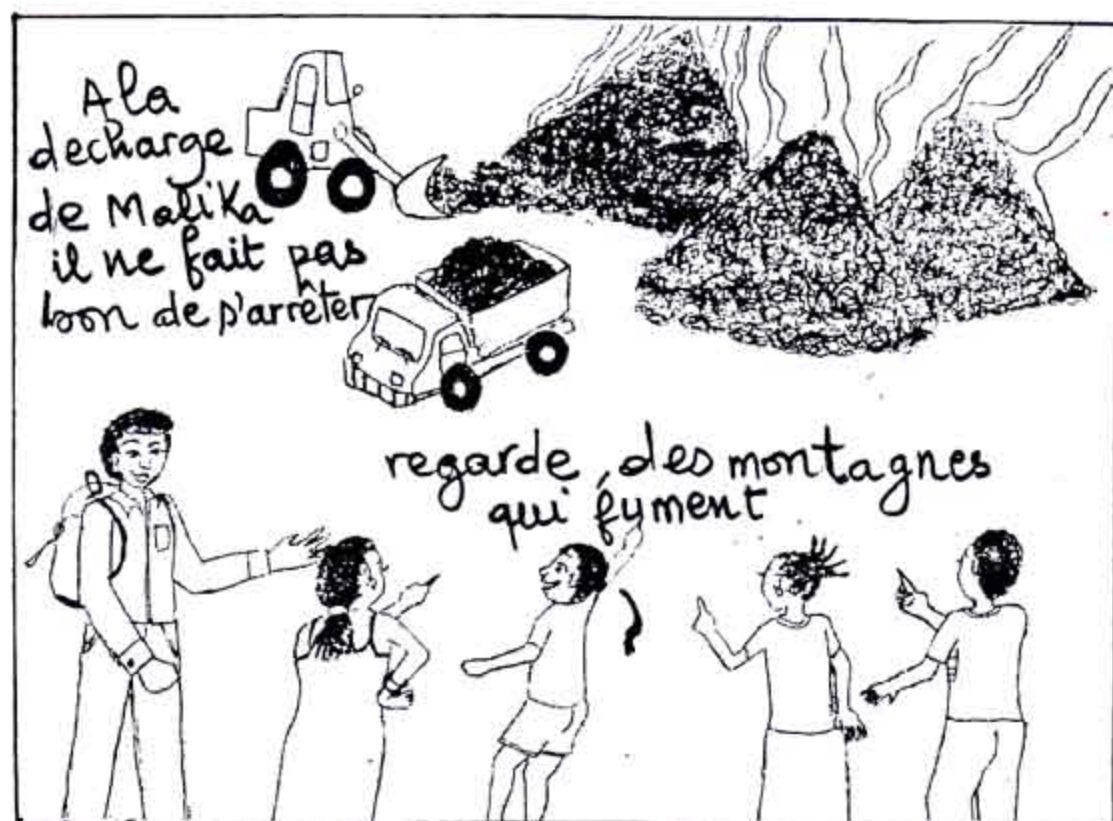 A la
decharge
de Malika
il ne fait pas
bon de s'arrêter
regarde, des montagnes
qui fument